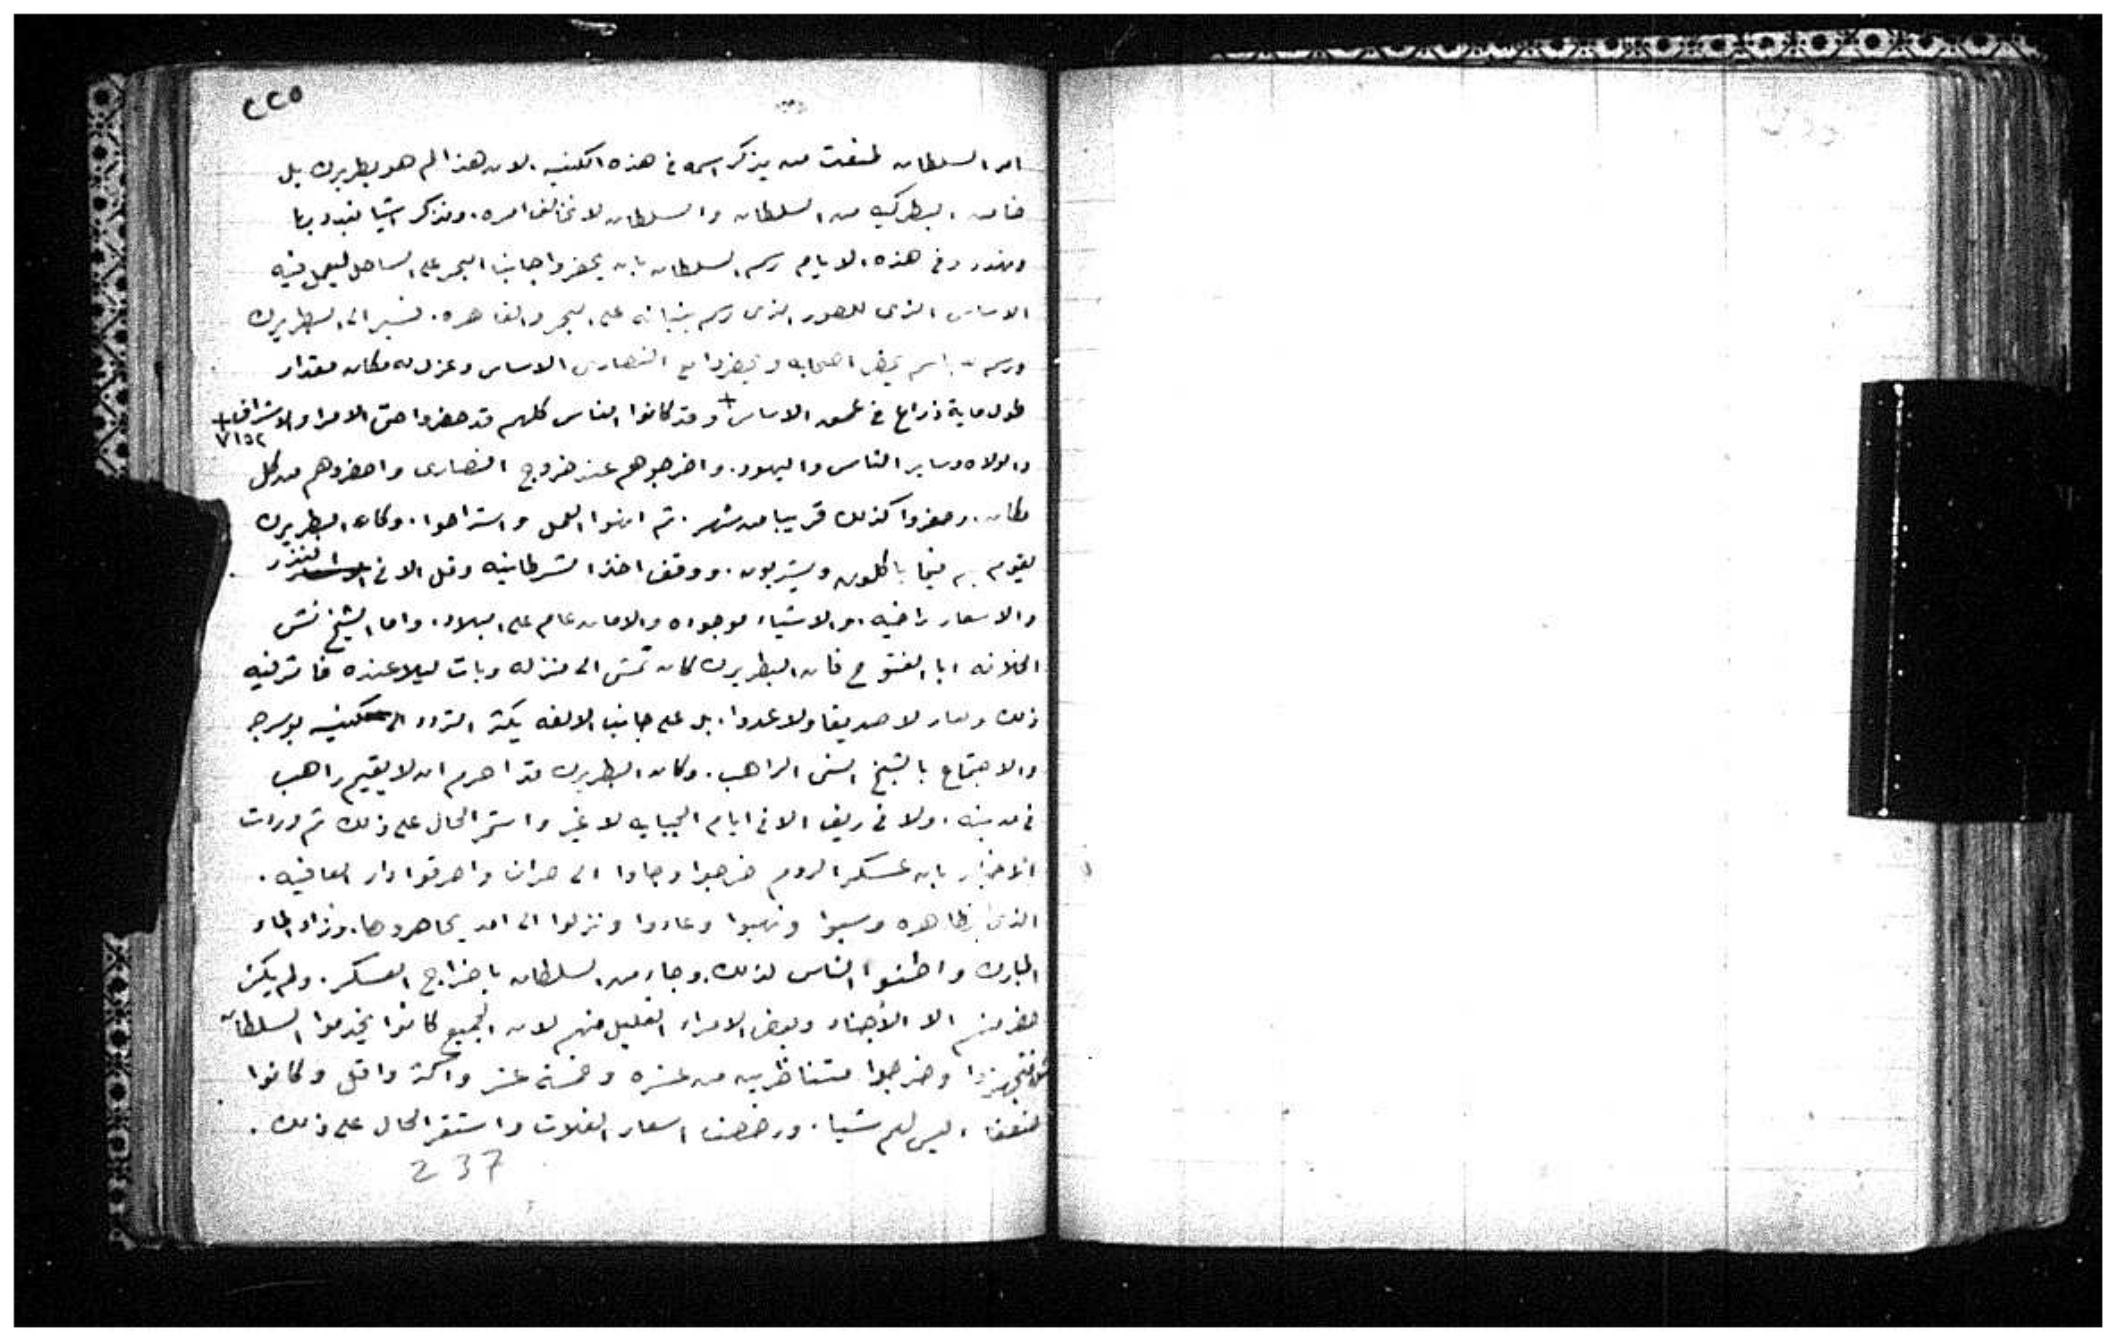 ٢٢٥
امر السلطان لمنعت من يذكر اسمه في هذه الكنيسه. لان هذا لم هو بطريرك بل
ضامن البطركيه من السلطان والسلطان لا نخالف امره. ونذكر اشيا
وفي هذه الايام رسم السلطان بان يحفروا جانب البحر على الساحل ليعمل فيه
الاساس الذى للصور الذى رسم بنيانه على البحر والقاهره. فسير الى البطريرك
ورسم باسم يحضر اصحابه ويحفروا مع النصارى الاساس وعزل له مكان مقدار
طول ماية ذراع في عمق الاساس + وقد كانوا الناس كلهم قد حضروا حتى الامرا والاشراف +
٧١٥٢
والولاه وساير الناس واليهود. واخرجوهم عند خروج النصارى واحضروهم من كل
مكان. وحفروا كذلك قريبا من شهر. ثم انهوا العمل واستراحوا. وكان البطريرك
يقوم بهم فيما ياكلون ويشربون. ووقف اخذ الشرطانيه وقل الا في النذر
والاسعار راخيه. والاشياء موجوده والامان عام على البلاد. واما الشيخ نش
الخلافه ابا الفتوح فان البطريرك كان تمشى الى منزله وبات ليلا عنده فاثر فيه
ذلك وصار لا صديقا ولا عدوا. بل على جانب الالفه يكثر التردد الى كنيسه بوسرجه
والاجتماع بالشيخ السنى الراهب. وكان البطريرك قد احرم ان لا يقيم راهب
في مدينه. ولا في ريف الا في ايام الجبايه لا غير واستمر الحال على ذلك ثم وردت
الاخبار بان عسكر الروم خرجوا وجاوا الى حران واحرقوا دار العافيه.
الذى بظاهره وسبوا ونهبوا وعادوا ونزلوا الى امد يحاصروها. وزاد الماء
المبارك واطمنوا الناس لذلك. وجاء من السلطان باخراج العسكر. ولم يكن
حضر منهم الا الاجناد وبعض الامراء القليل منهم لان الجميع كانوا يخدموا السلطان
فتجهزوا وخرجوا متناظرين من عشره وخمسة عشر واكثر واقل وكانوا
ضعفا ليس لهم شيا. ورخصت اسعار الغلات واستقر الحال على ذلك.
237